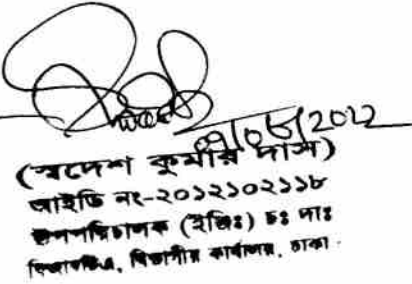 ০৭/০৮/2022
(স্বদেশ কুমার দাস)
আইডি নং-২০১২১০২১১৮
উপপরিচালক (ইঞ্জিঃ) চঃ দাঃ
বিআরটিএ, বিভাগীয় কার্যালয়, ঢাকা.